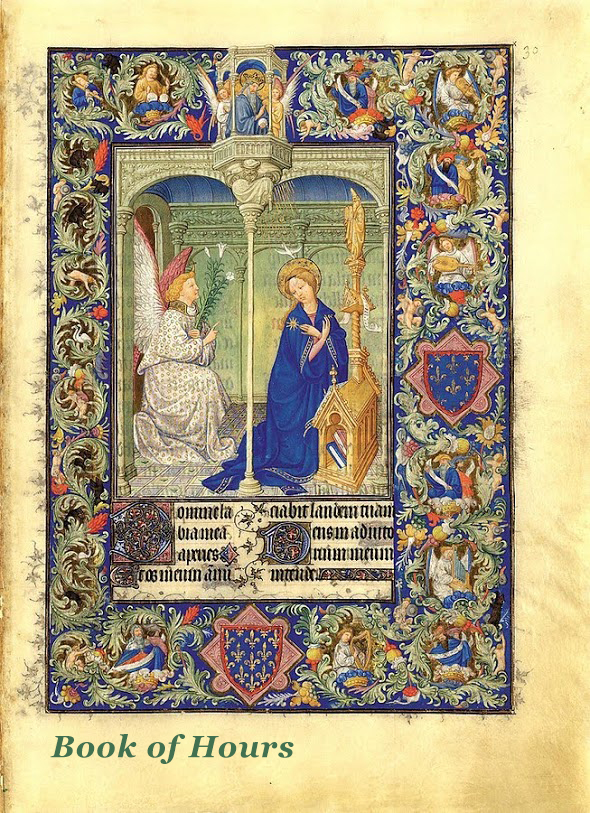 30
Domine la
bia mea
aperies
Et os meum annū
ciabit laudem tuam
Deus in adiuto
rium meum
intende
Book of Hours